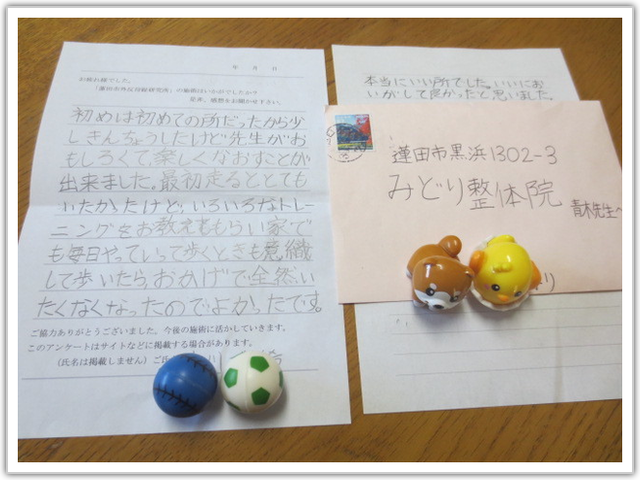 年 月 日
お疲れ様でした。
「蓮田市外反母趾研究所」の施術はいかがでしたか？
是非、感想をお聞かせ下さい。
初めは初めての所だったから少
しきんちょうしたけど先生がお
もしろくて、楽しくなおすことが
出来ました。最初走るととても
いたかったけど、いろいろなトレー
ニングをお教えをもらい家で
も毎日やっていって歩くときも意識
して歩いたら、おかげで全然い
たくなくなったのでよかったです。
ご協力ありがとうございました。今後の施術に活かしていきます。
このアンケートはサイトなどに掲載する場合があります。
（氏名は掲載しません）ご氏
本当にいい所でした。いいにお
いがして良かったと思いました。
蓮田市黒浜1302-3
みどり整体院
青木先生へ